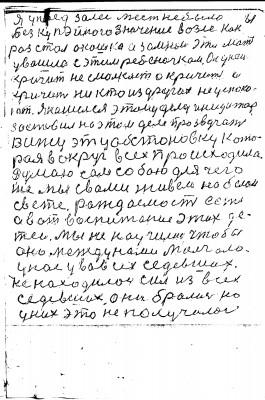 Я упред залег мест не было вы
без купэйного значение возле как
раз стол окошка а за мной эта мать
увашла с этим ребёночкам. Он
кричит не сможет а кричит а
кричит ни кто из других не успоко-
ит. Я нашился этому делу инициатор
заставил на этом деле прозвучать
вижу эту абстоновку кото-
рая вокруг всех происходила.
Думаю сам собою для чего
же мы с вами живём на белом
свете, рождаемость есть
а вот воспитание этих де-
тей. Мы не научили чтобы
оно между нами молчало
у нас у вовсех седевших.
Не находилось сил из всех
седевших, они брались но
у них это не получалось